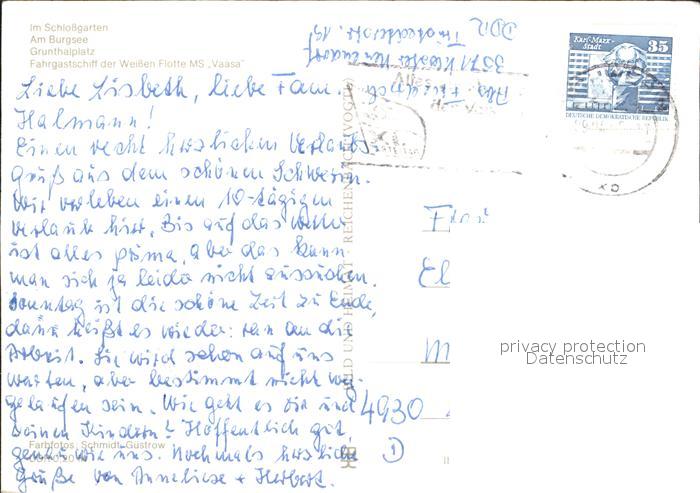 Im Schloßgarten
Am Burgsee
Grunthalplatz
Fahrgastschiff der Weißen Flotte MS „Vaasa"
Liebe Lisbeth, liebe Fam.
Halmann!
Einen recht herzlichen Urlaubs-
gruß aus dem schönen Schwerin.
Wir verleben einen 10-tägigen
Urlaub hier. Bis auf das Wetter
ist alles prima, aber das kann
man sich ja leider nicht aussuchen.
Sonntag ist die schöne Zeit zu Ende,
dann heißt es wieder: ran an die
Arbeit. Sie wird schon auf uns
warten, aber bestimmt nicht weg-
gelaufen sein. Wie geht es Dir und
Deinen Kindern? Hoffentlich gut,
genau wie uns. Nochmals herzliche
Grüße von Anneliese + Herbert.
Farbfotos: Schmidt, Güstrow
Abs.
3571 Kloster
DDR
BILD UND HEIMAT · REICHENBACH (VOGTL)
Karl-Marx-
Stadt
35
DEUTSCHE DEMOKRATISCHE REPUBLIK
El
M
4930
1
privacy protection
Datenschutz